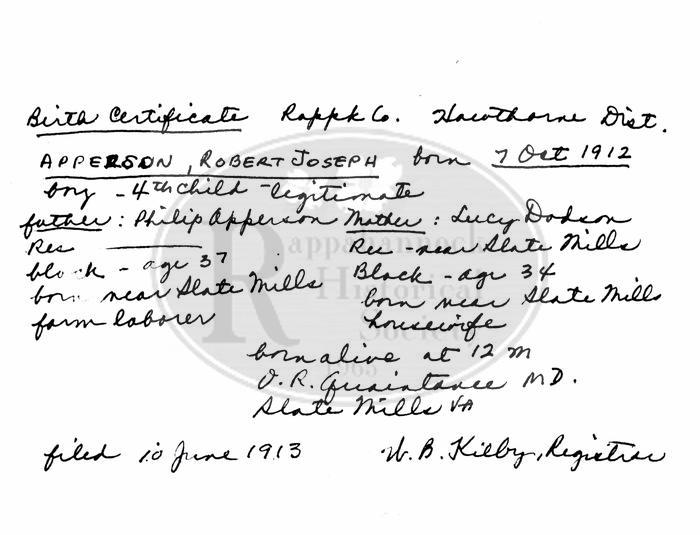 Birth Certificate Rappk Co. Hawthorne Dist.
APPERSON, ROBERT JOSEPH born 7 Oct 1912
boy - 4th child - legitimate
father : Philip Apperson Mother : Lucy Dodson
Res ——— Res - near Slate Mills
black - age 37 Black - age 34
born near Slate Mills born near Slate Mills
farm laborer housewife
born alive at 12 M
O. R. Quaintance MD.
Slate Mills VA
filed 10 June 1913 W. B. Kilby, Registrar
Rappahannock
Historical
Society
1965